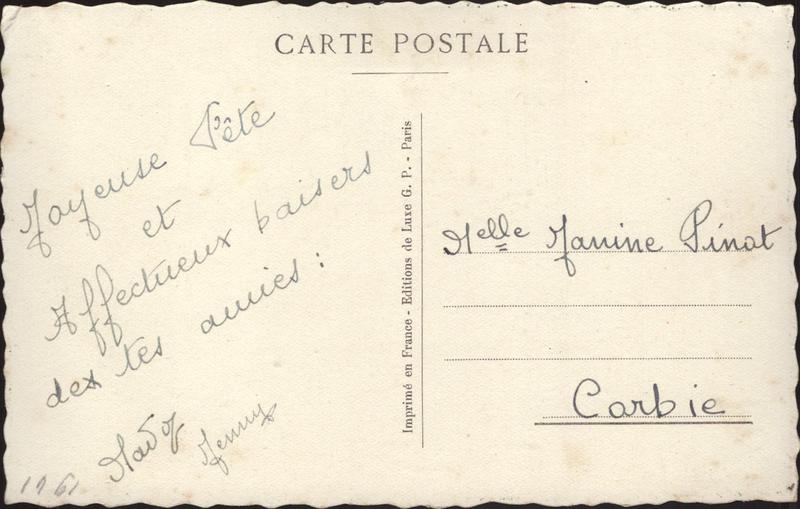 CARTE POSTALE
Joyeuse Fête
et
Affectueux baisers
des tes amies :
Mady
Jenny
1961
Imprimé en France - Editions de Luxe G. P. - Paris
Melle Janine Pinat
Corbie